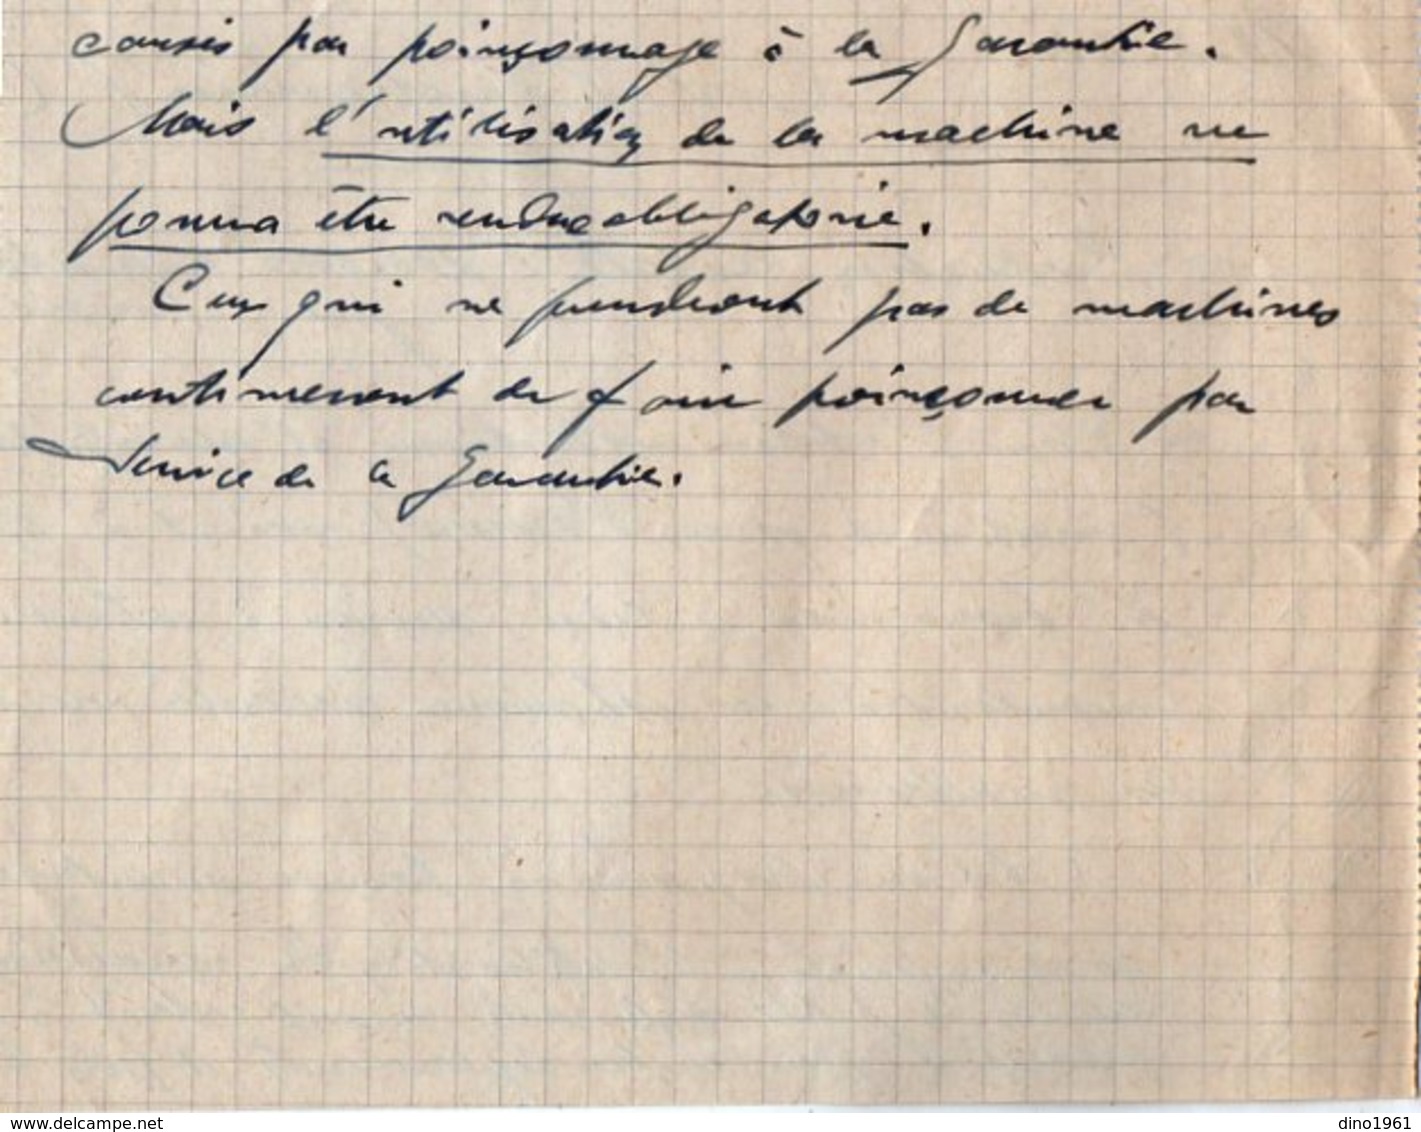 causés par poinçonnage à la Garantie.
Mais l'utilisation de la machine ne
pourra être rendue obligatoire.
Ceux qui ne prendront pas de machines
continueront de faire poinçonner par
Service de la Garantie.
www.delcampe.net
dino1961